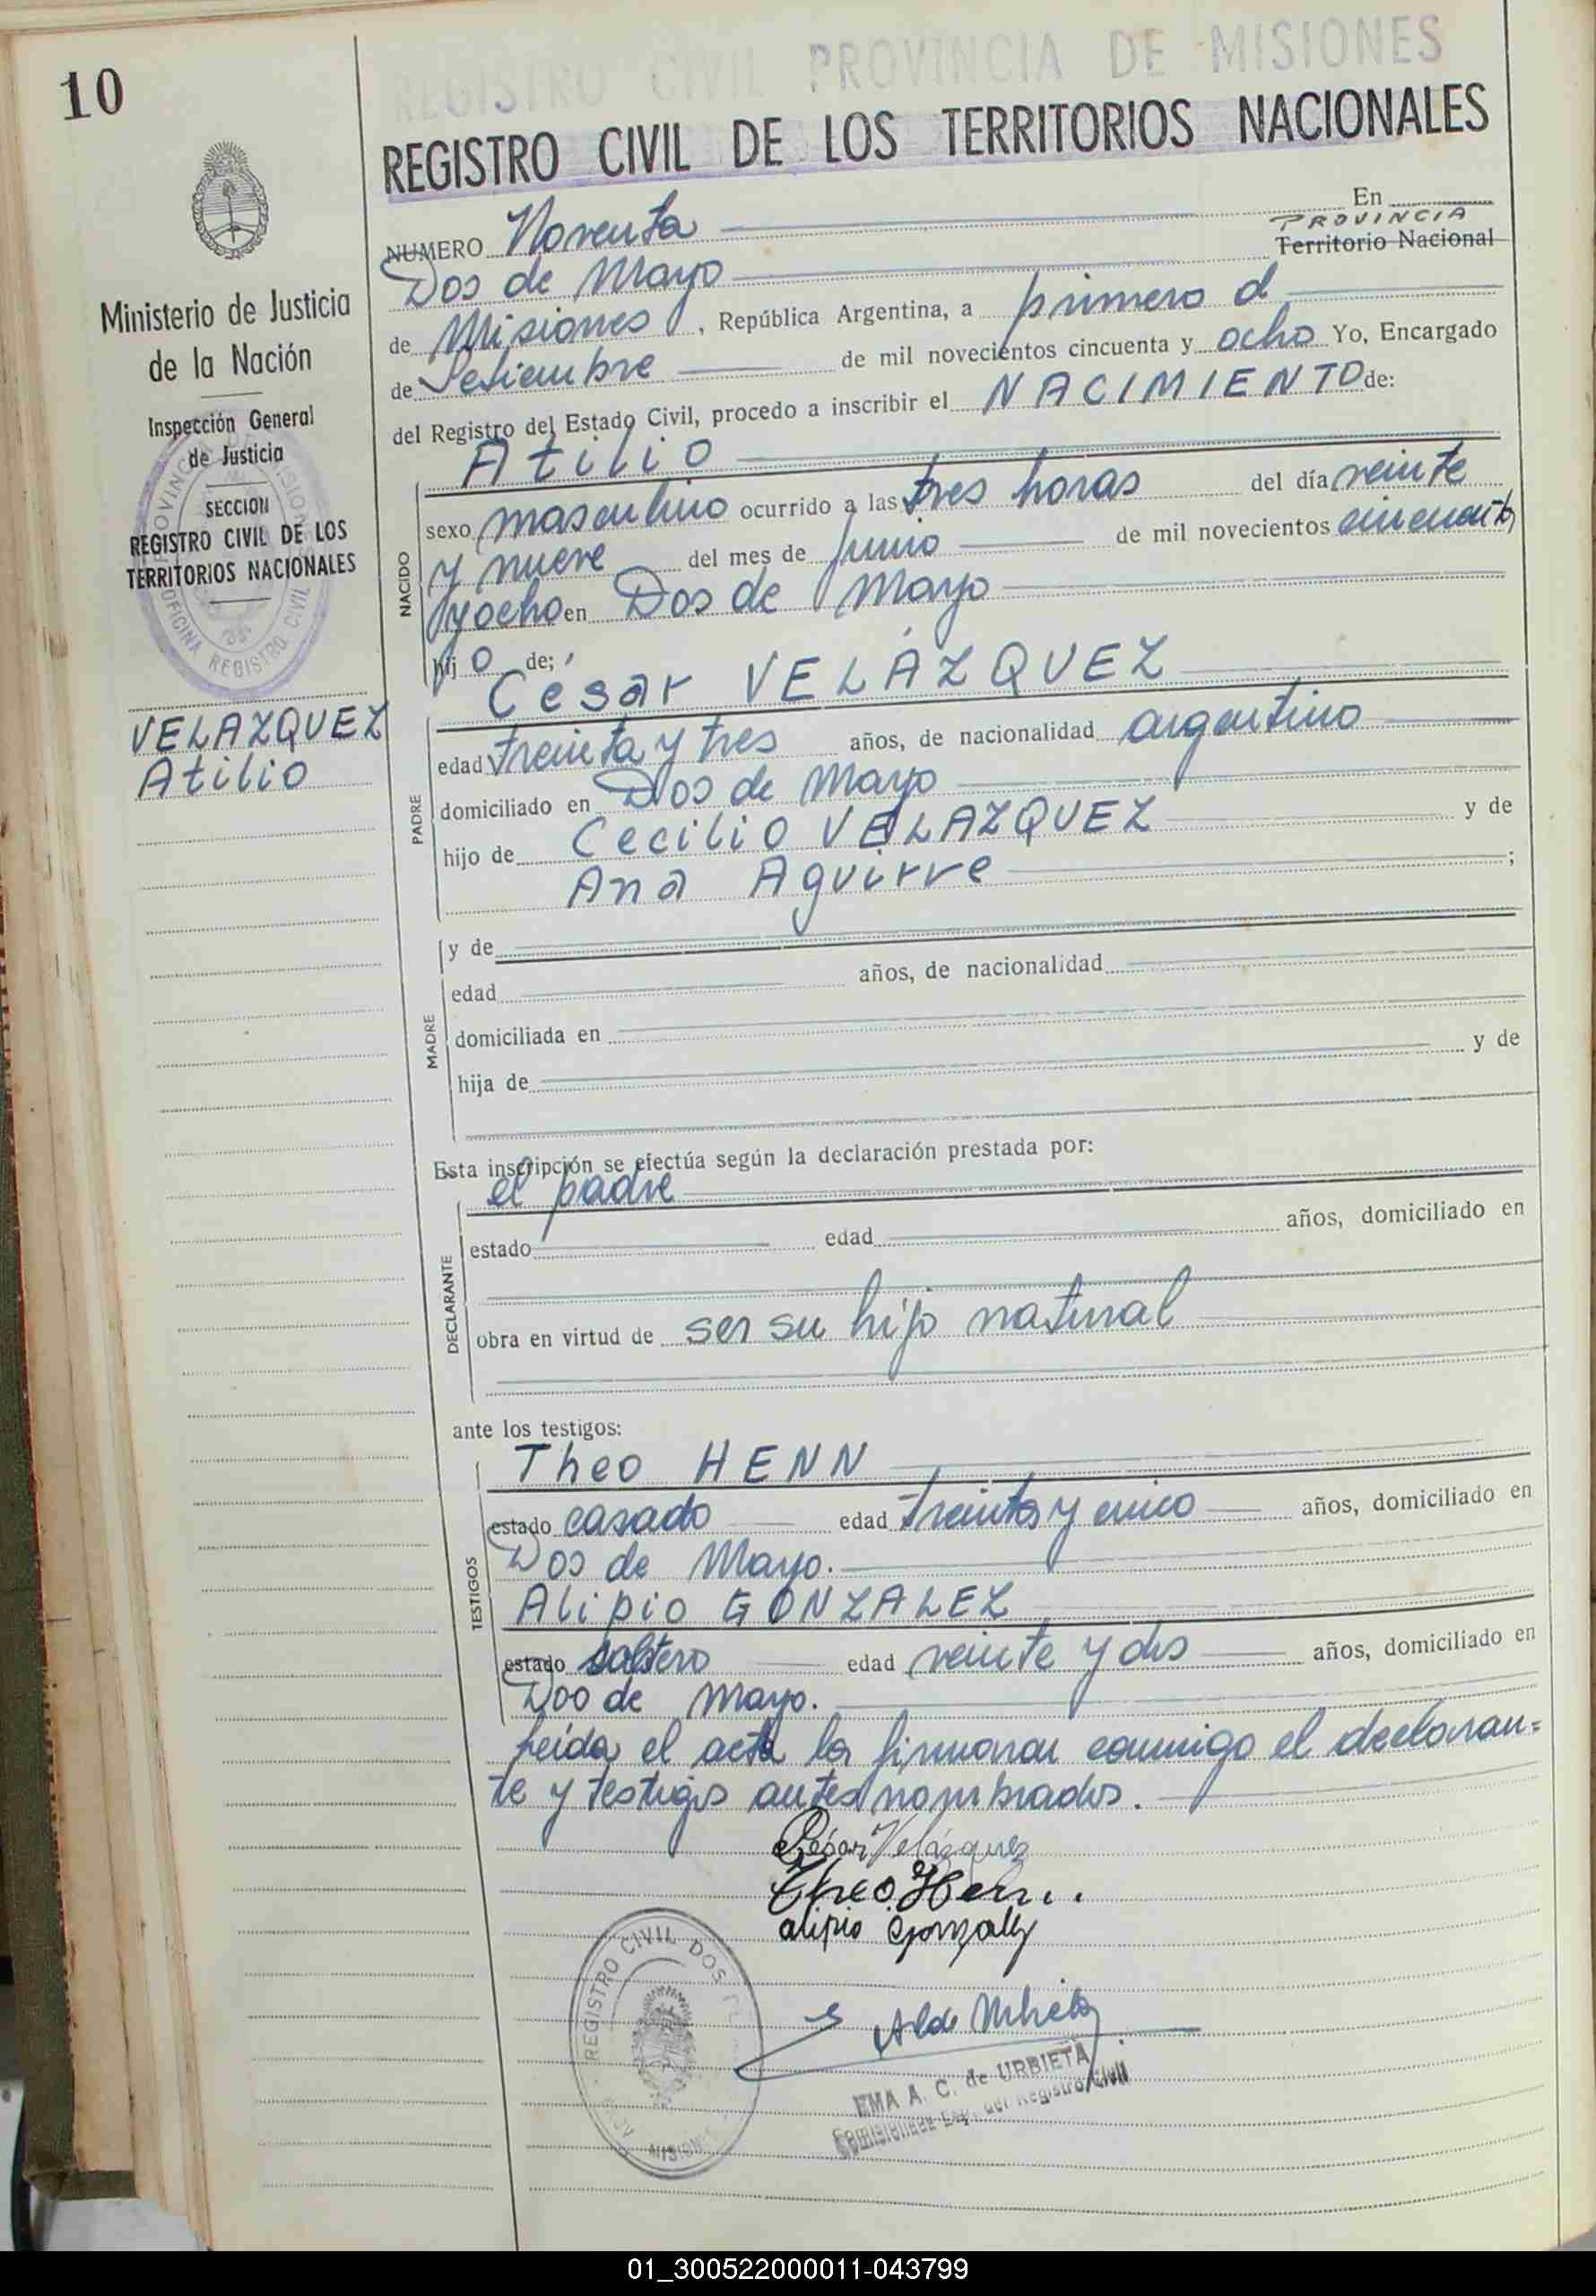 10
REGISTRO CIVIL PROVINCIA DE MISIONES
REGISTRO CIVIL DE LOS TERRITORIOS NACIONALES
Ministerio de Justicia
de la Nación
Inspección General
de Justicia
SECCION
REGISTRO CIVIL DE LOS
TERRITORIOS NACIONALES
OFICINA REGISTRO CIVIL
VELAZQUEZ
Atilio
NUMERO Noventa En
PROVINCIA
Dos de Mayo Territorio Nacional
de Misiones, República Argentina, a primero d
de Setiembre de mil novecientos cincuenta y ocho Yo, Encargado
del Registro del Estado Civil, procedo a inscribir el NACIMIENTO de:
Atilio
NACIDO
sexo masculino ocurrido a las tres horas del día veinte
y nueve del mes de Junio de mil novecientos cincuenta
y ocho en Dos de Mayo
hijo de;
César VELÁZQUEZ
PADRE
edad treinta y tres años, de nacionalidad argentino
domiciliado en Dos de Mayo
hijo de Cecilio VELAZQUEZ y de
Ana Aguirre ;
MADRE
y de
edad años, de nacionalidad
domiciliada en
hija de y de
Esta inscripción se efectúa según la declaración prestada por:
el padre
DECLARANTE
estado edad años, domiciliado en
obra en virtud de ser su hijo natural
ante los testigos:
TESTIGOS
Theo HENN
estado casado edad treinta y cinco años, domiciliado en
Dos de Mayo.
Alipio GONZALEZ
estado soltero edad veinte y dos años, domiciliado en
Dos de Mayo.
Leída el acta la firmaron conmigo el declaran=
te y testigos antes nombrados.
César Velázquez
Theo Henn.
alipio Gonzalez
REGISTRO CIVIL DOS
MISIONES
EMA A. C. de URBIETA
del Registro Civil
01_300522000011-043799